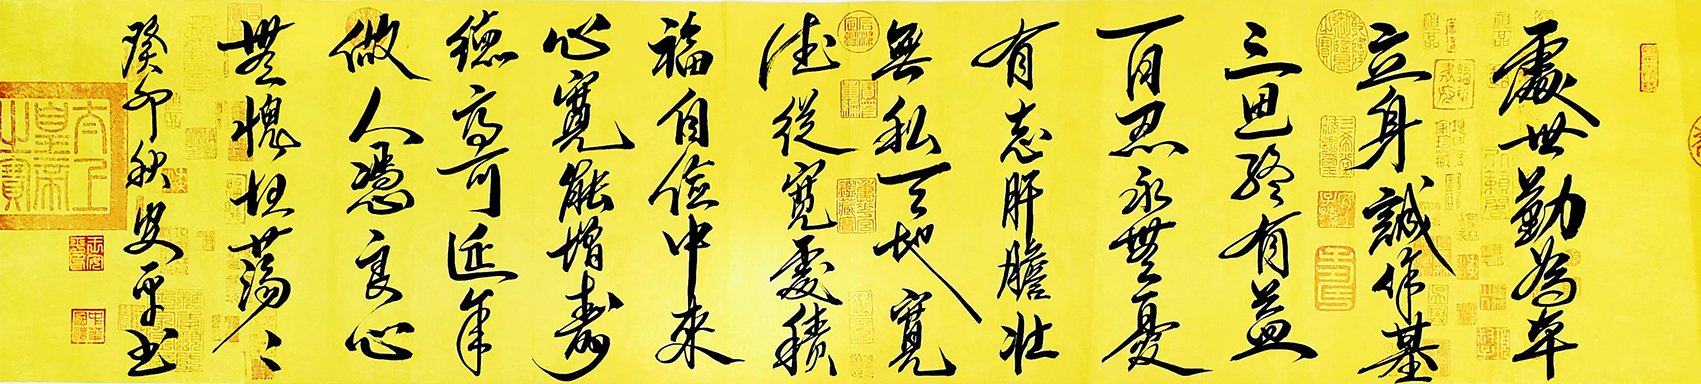 處世勤為本
立身誠作基
三思終有益
百忍永無憂
有志肝膽壯
無私天地寬
德從寬處積
福自儉中來
心寬能增壽
德高可延年
做人憑良心
無愧坦蕩々
癸卯秋安平书
太上皇帝之寶